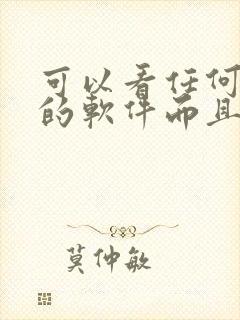 可以看任何
的軟件而且
莫仲敏